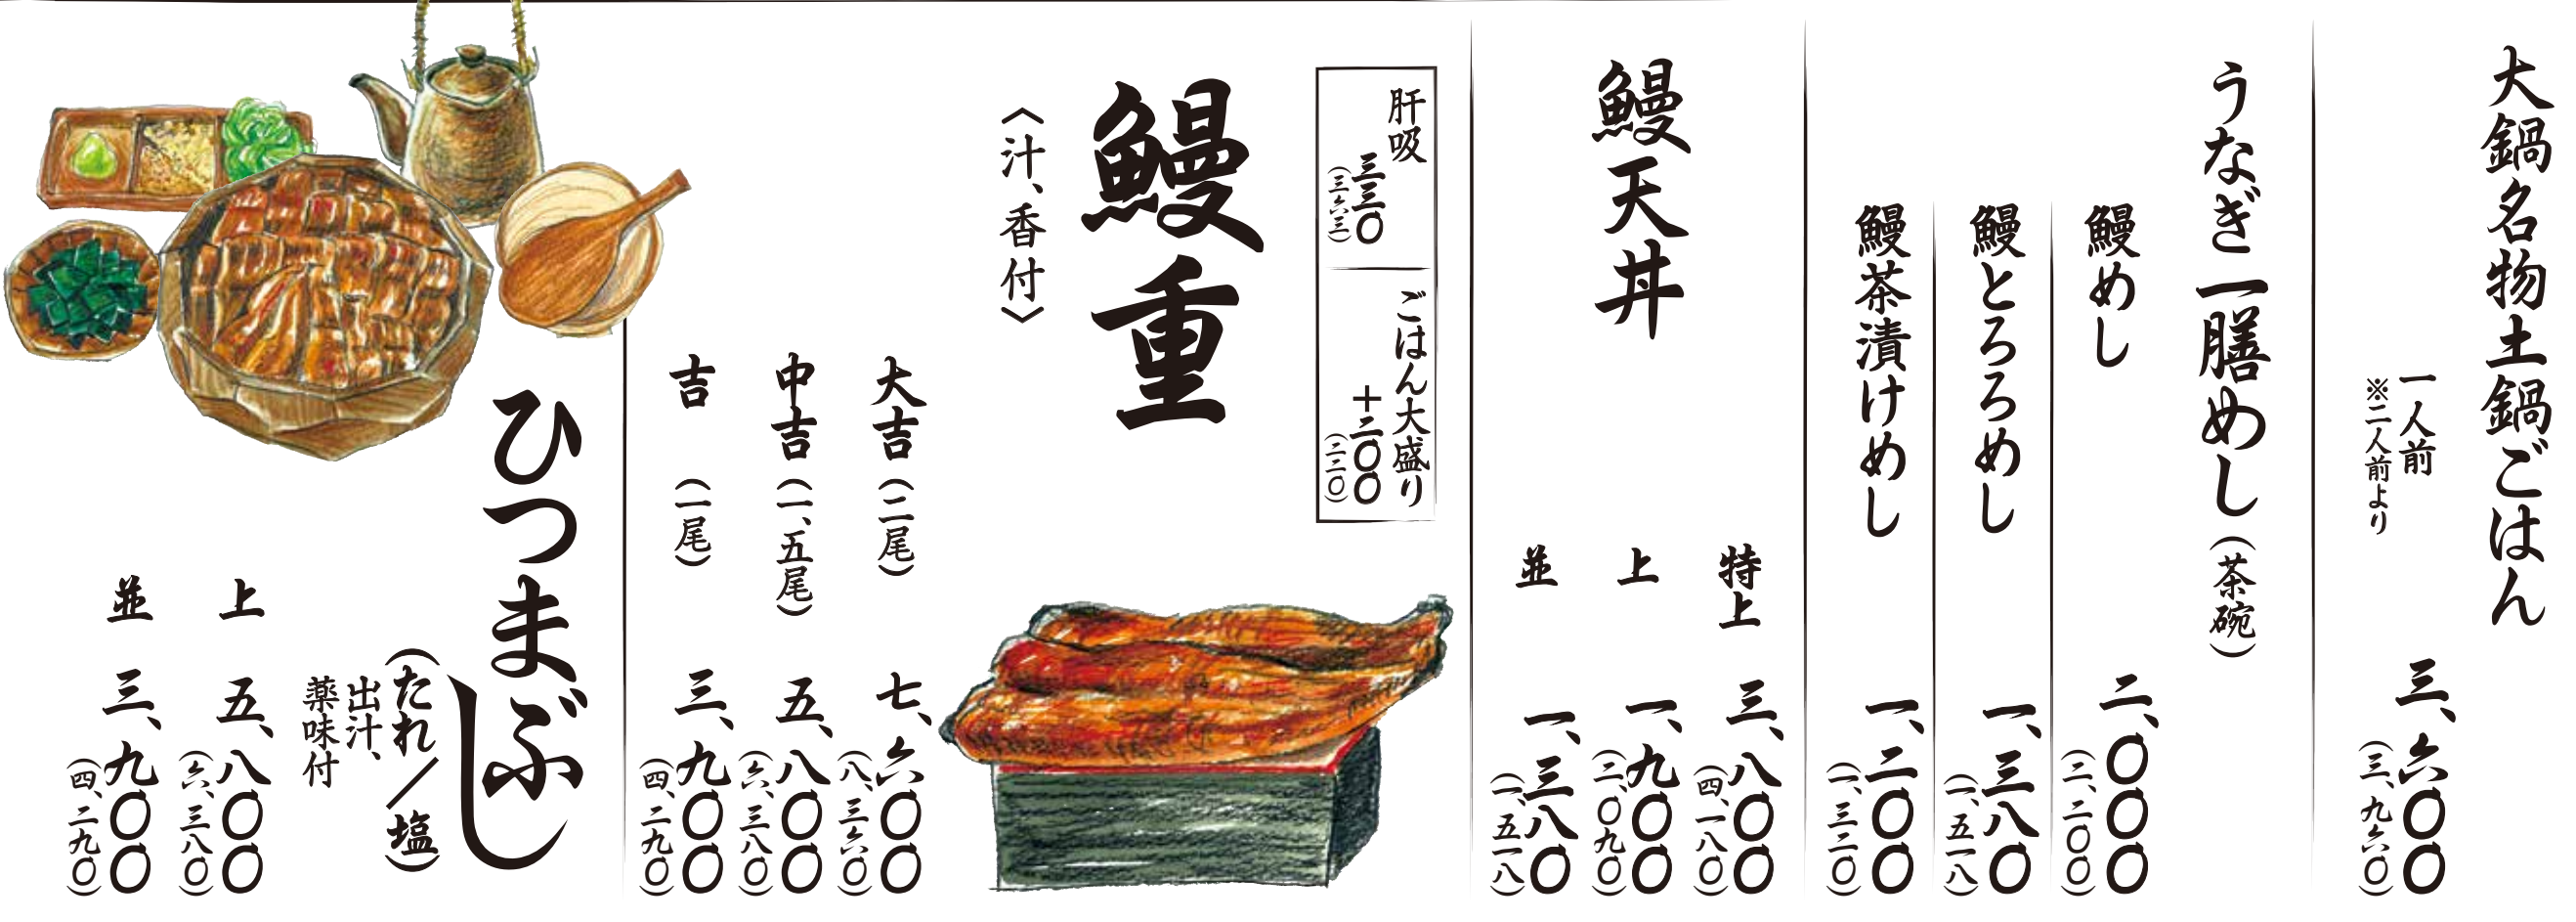 大鍋名物土鍋ごはん
一人前 三、六〇〇
※二人前より (三、九六〇)
うなぎ一膳めし(茶碗)
鰻めし 二、〇〇〇
(二、二〇〇)
鰻とろろめし 一、三八〇
(一、五一八)
鰻茶漬けめし 一、二〇〇
(一、三二〇)
鰻天丼
特上 三、八〇〇
(四、一八〇)
上 一、九〇〇
(二、〇九〇)
並 一、三八〇
(一、五一八)
肝吸
三三〇
(三六三)
ごはん大盛り
+二〇〇
(二二〇)
鰻重
〈汁、香付〉
大吉(二尾) 七、六〇〇
(八、三六〇)
中吉(一、五尾) 五、八〇〇
(六、三八〇)
吉(一尾) 三、九〇〇
(四、二九〇)
ひつまぶし
(たれ/塩)
出汁、
薬味付
上 五、八〇〇
(六、三八〇)
並 三、九〇〇
(四、二九〇)